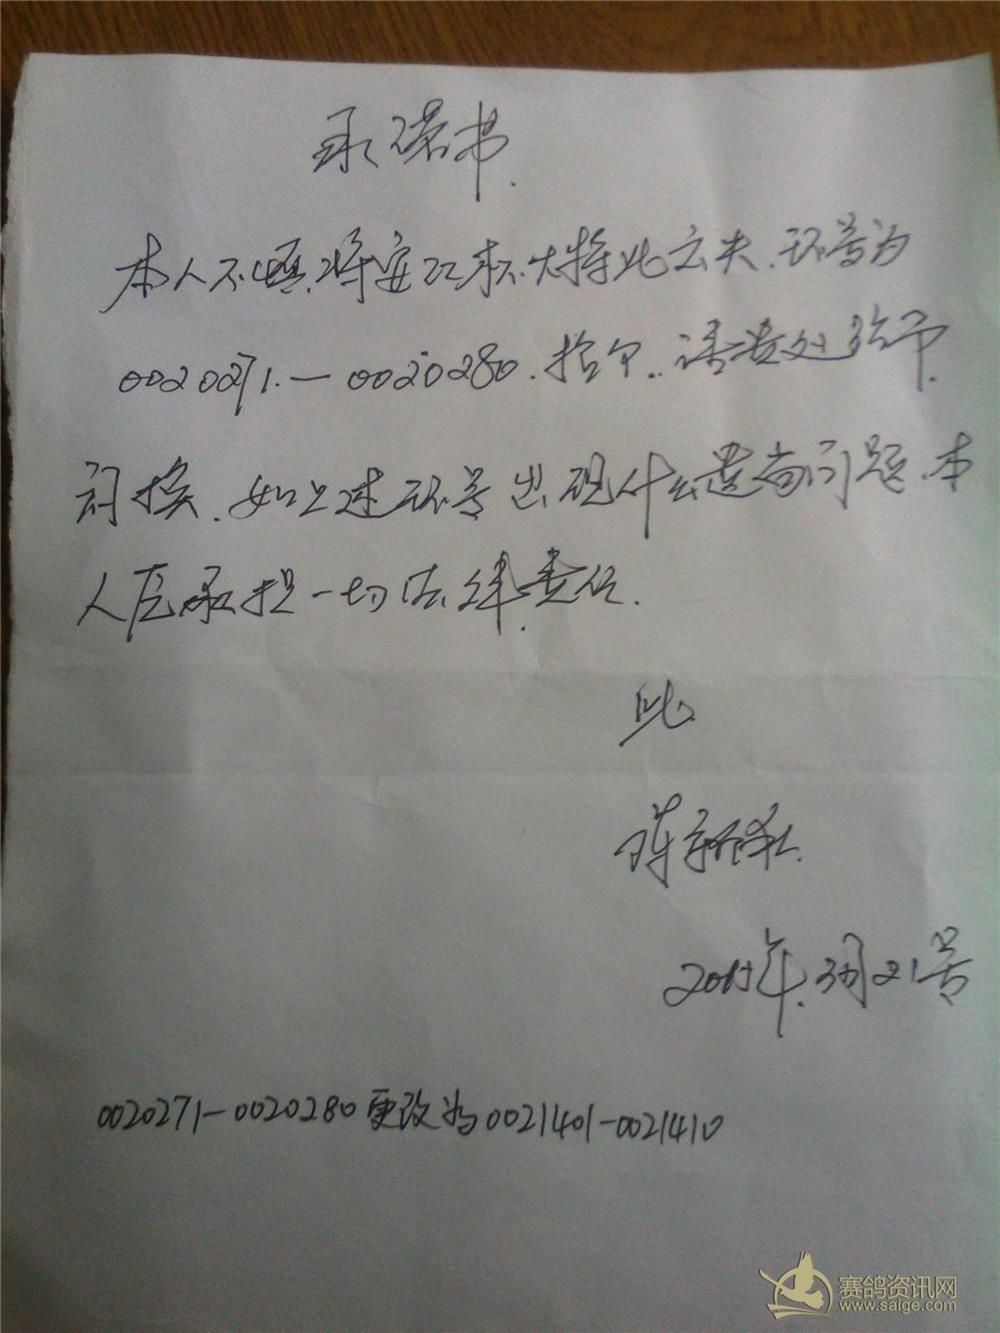 承诺书.
本人不慎.将安江杯大特比去失.环号为
0020271.—0020280.拾个..请贵处给予.
更换.如上述环号出现什么遗留问题.本
人应承担一切法律责任.
此
蒋新
2015年.3月21号
0020271-0020280更改为0021401-0021410
赛鸽资讯网
www.saige.com